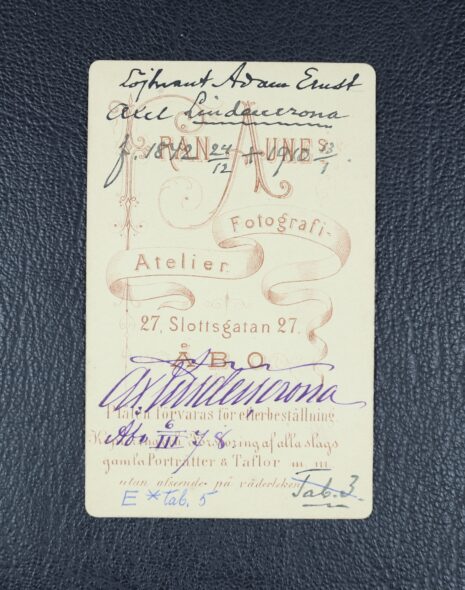 Löjtnant Adam Ernst
Axel Lindencrona
FRAN AUNES
f. 1842 24/12 + 1910 13/1
Fotografi-
Atelier.
27. Slottsgatan 27.
ÅBO
Ax Lindencrona
Plåten förvaras för efterbeställning.
Åbo 6/III 78
af alla slags
gamla Porträtter & Taflor m. m.
utan afseende på väderleken
Tab. 3.
E * tab. 5